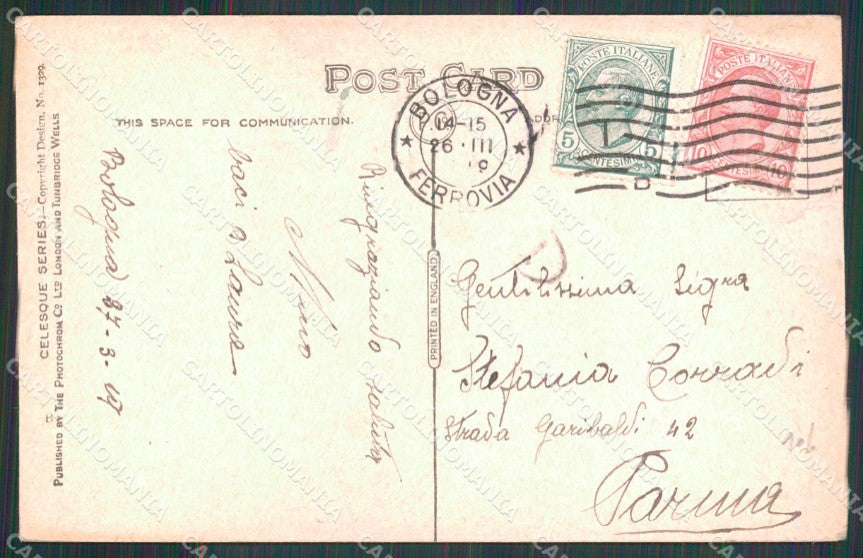 POST CARD
THIS SPACE FOR COMMUNICATION.
CELESQUE SERIES.—Copyright Design. No. 1399.
PUBLISHED BY THE PHOTOCHROM CO LTD LONDON AND TUNBRIDGE WELLS
PRINTED IN ENGLAND
BOLOGNA
14-15
26 · III
FERROVIA
POSTE ITALIANE
5 5
CENTESIMI
POSTE ITALIANE
10 10
CENTESIMI
Bologna 27-3-19
baci a Laura
Nino
Ringraziando saluta
Gentilissima Sigra
Stefania Corradi
Strada Garibaldi 42
Parma
CARTOLINOMANIA